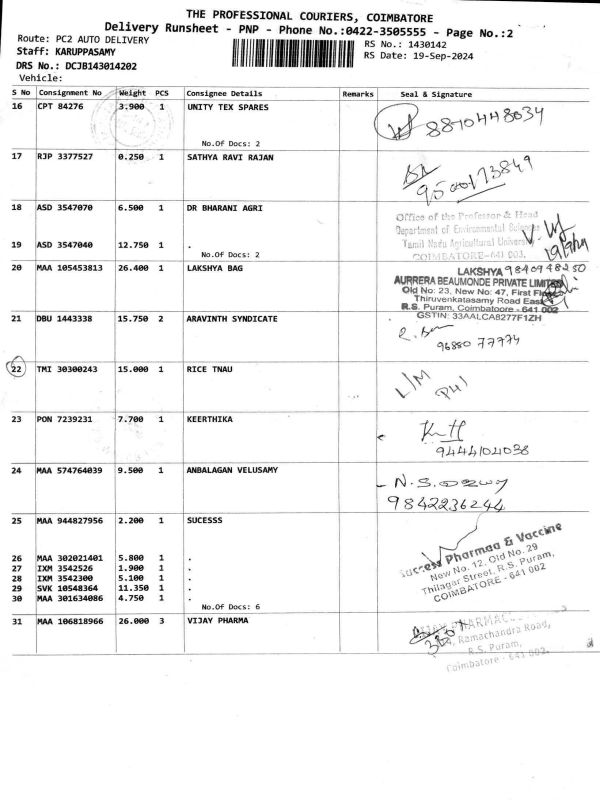 THE PROFESSIONAL COURIERS, COIMBATORE
Delivery Runsheet - PNP - Phone No.:0422-3505555 - Page No.:2
Route: PC2 AUTO DELIVERY
RS No.: 1430142
Staff: KARUPPASAMY
RS Date: 19-Sep-2024
DRS No.: DCJB143014202
Vehicle:
S No Consignment No Weight PCS Consignee Details Remarks Seal & Signature
16 CPT 84276 3.900 1 UNITY TEX SPARES
8870448034
No.Of Docs: 2
17 RJP 3377527 0.250 1 SATHYA RAVI RAJAN
9500173849
18 ASD 3547070 6.500 1 DR BHARANI AGRI
Office of the Professor & Head
Department of Environmental Sciences
19 ASD 3547040 12.750 1 .
Tamil Nadu Agricultural University
19/9/24
No.Of Docs: 2
COIMBATORE-641 003.
20 MAA 105453813 26.400 1 LAKSHYA BAG
LAKSHYA 9840948250
AURRERA BEAUMONDE PRIVATE LIMITED
Old No: 23, New No: 47, First Floor
Thiruvenkatasamy Road East
R.S. Puram, Coimbatoore - 641 002
GSTIN: 33AALCA8277F1ZH
21 DBU 1443338 15.750 2 ARAVINTH SYNDICATE
96880 77774
22 TMI 30300243 15.000 1 RICE TNAU
L/M
23 PON 7239231 7.700 1 KEERTHIKA
9444104038
24 MAA 574764039 9.500 1 ANBALAGAN VELUSAMY
N.S.
9842236244
25 MAA 944827956 2.200 1 SUCESSS
Success Pharmaa & Vaccine
New No. 12, Old No. 29
Thilagar Street, R.S. Puram,
COIMBATORE - 641 002
26 MAA 302021401 5.800 1 .
27 IXM 3542526 1.900 1 .
28 IXM 3542300 5.100 1 .
29 SVK 10548364 11.350 1 .
30 MAA 301634086 4.750 1 .
No.Of Docs: 6
31 MAA 106818966 26.000 3 VIJAY PHARMA
Ramachandra Road,
R.S. Puram,
Coimbatore - 641 002.